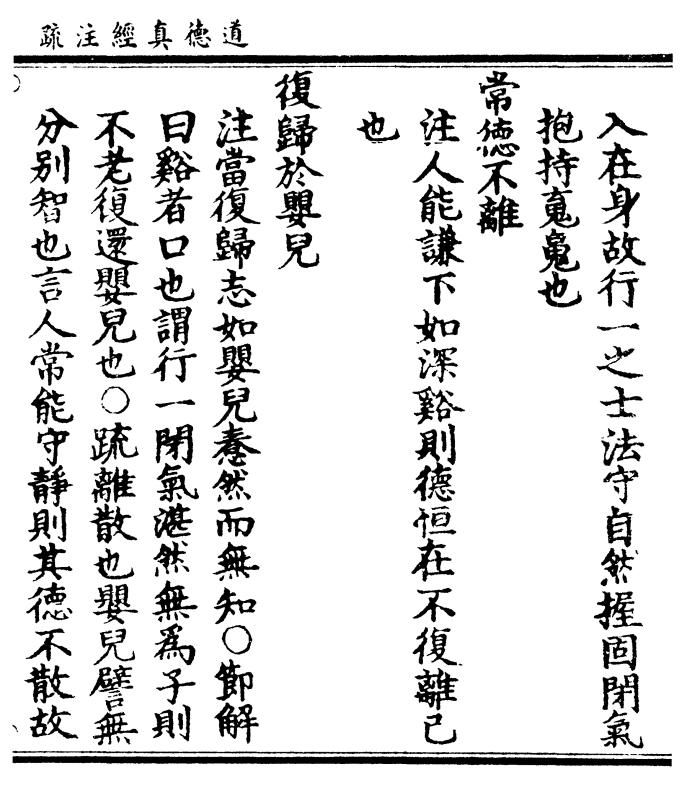 道德真經注疏
入在身故行一之士法守自然握固閉氣
抱持䰟魄也
常德不離
注人能謙下如深谿則德恒在不復離已
也
復歸於嬰兒
注當復歸志如嬰兒憃然而無知○節解
曰谿者口也謂行一閉氣湛然無為子則
不老復還嬰兒也○疏離散也嬰兒譬無
分別智也言人常能守靜則其德不散故